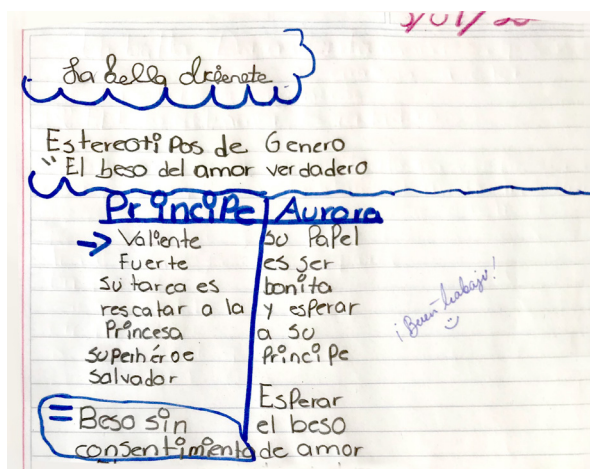 5/01/20
La bella durmiente
Estereotipos de Genero
"El beso del amor verdadero
Principe | Aurora
→ Valiente
Fuerte
Su tarea es
rescatar a la
Princesa
Superhéroe
Salvador
= Beso sin
consentimiento
Su Papel
es ser
bonita
y esperar
a su
Principe
Esperar
el beso
de amor
¡Buen trabajo!